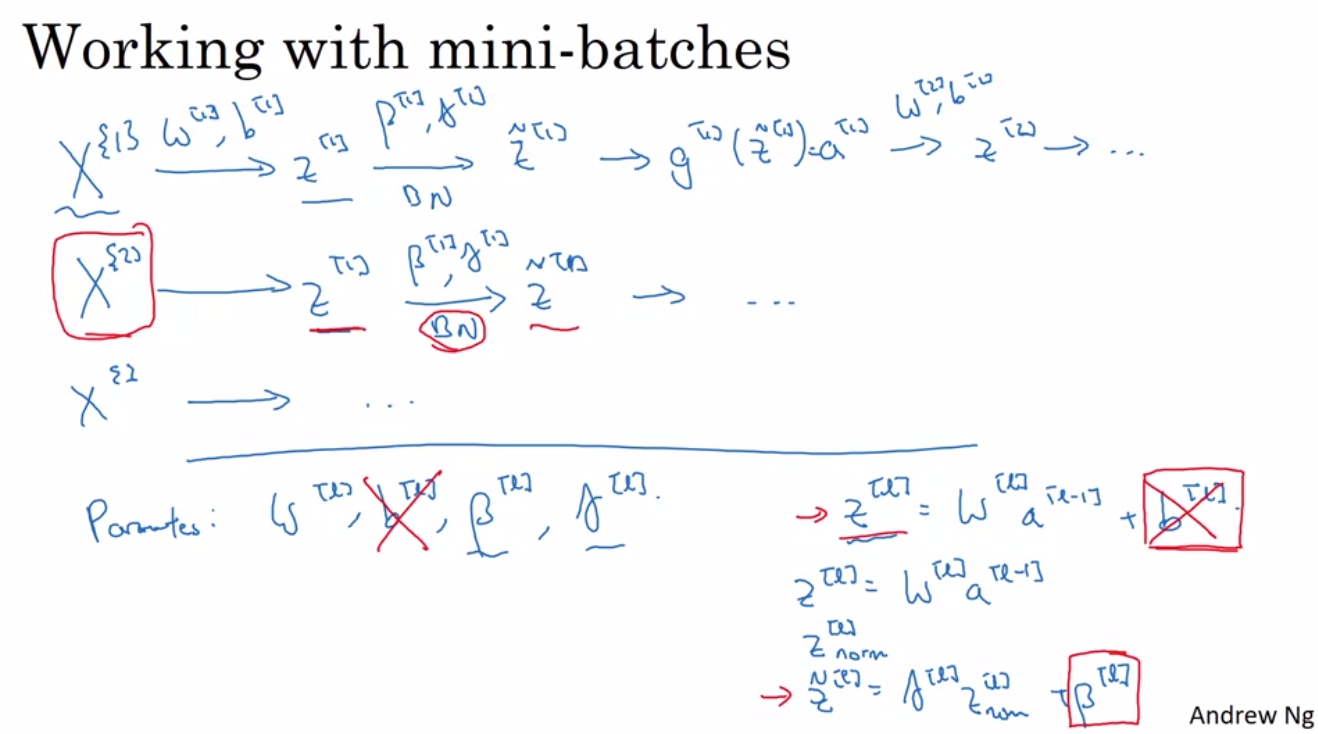 Working with mini-batches
X^{1} →(W^[1], b^[1]) z^[1] →(β^[1], γ^[1], BN) z̃^[1] → g^[1](z̃^[1]) = a^[1] →(W^[2], b^[2]) z^[2] → ...
X^{2} → z^[1] →(β^[1], γ^[1], BN) z̃^[1] → ...
X^{} → ...
Parameters: W^[l], b^[l], β^[l], γ^[l].
→ z^[l] = W^[l] a^[l-1] + b^[l].
z^[l] = W^[l] a^[l-1]
z^[l]_norm
→ z̃^[l] = γ^[l] z^[l]_norm + β^[l]
Andrew Ng